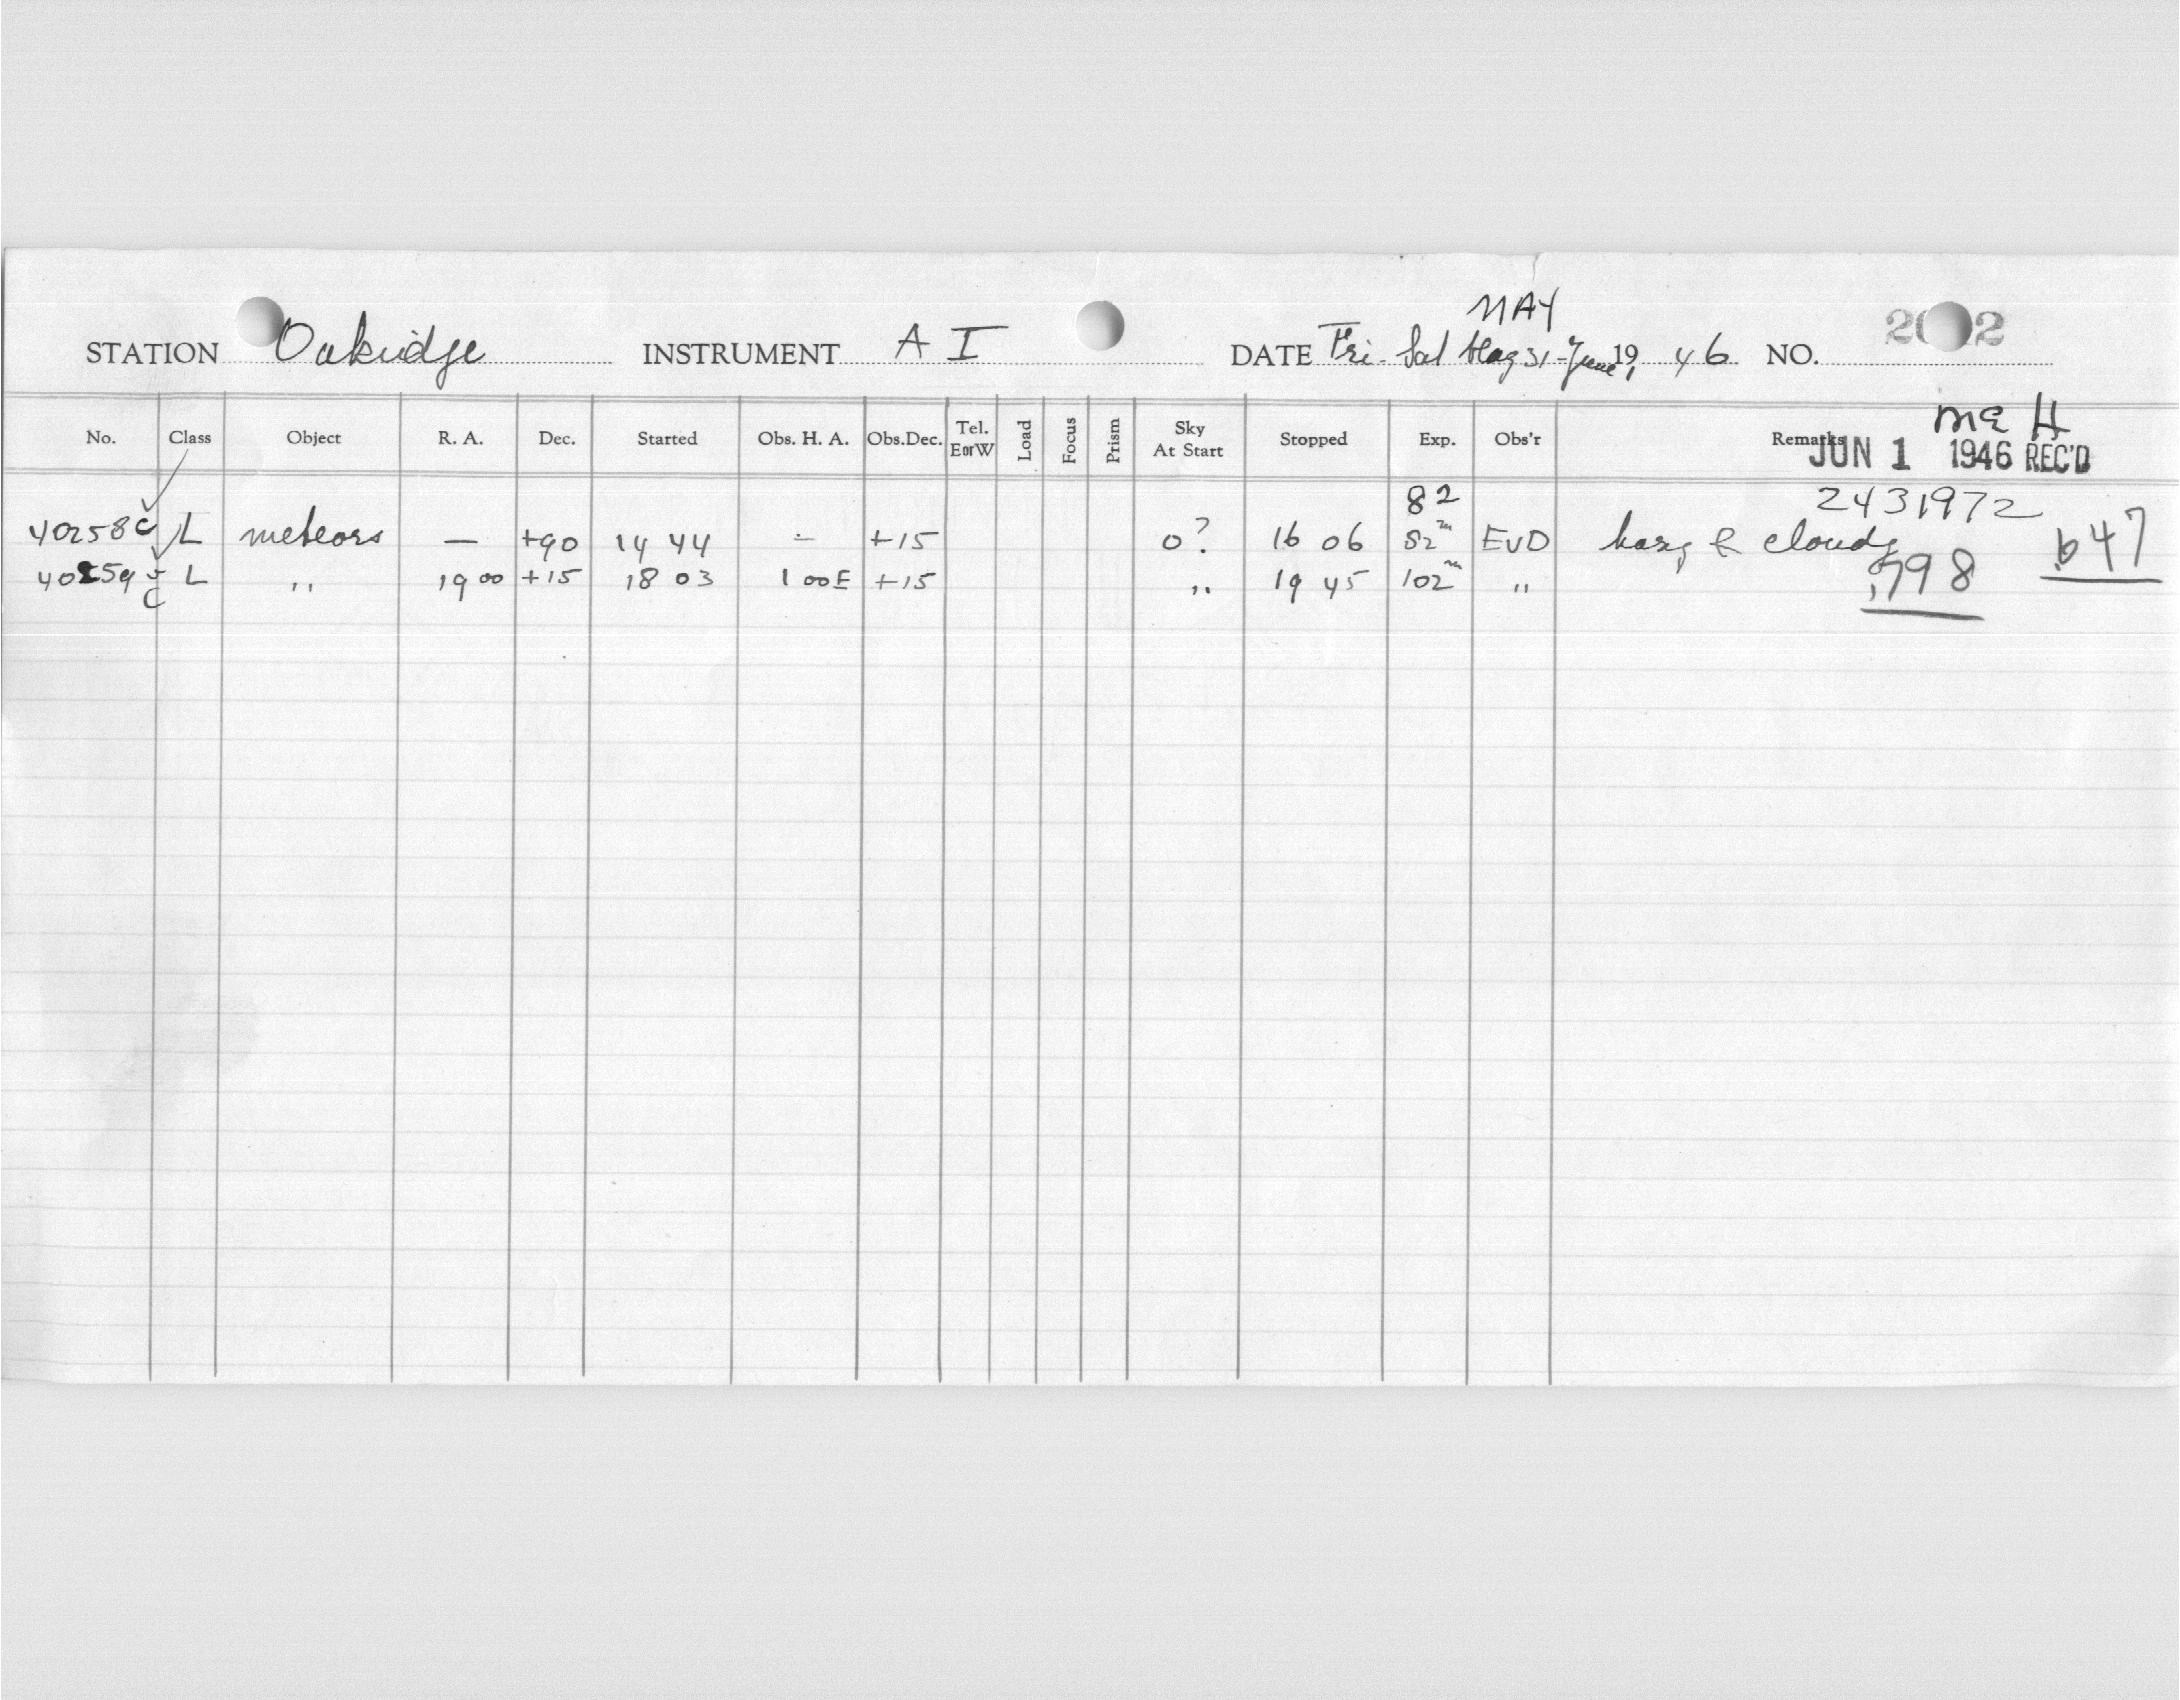 MAY
STATION Oakridge INSTRUMENT A I DATE Fri - Sat May 31 - June 1, 19 46 NO.
McH
No. Class Object R. A. Dec. Started Obs. H. A. Obs.Dec. Tel. E or W Load Focus Prism Sky At Start Stopped Exp. Obs'r Remarks
JUN 1 1946 REC'D
82 2431972
40258 c L meteors — +90 14 44 — +15 0? 16 06 82m EvD hazy & cloudy .647
40259 c L " 19 00 +15 18 03 1 00E +15 " 19 45 102m " .798